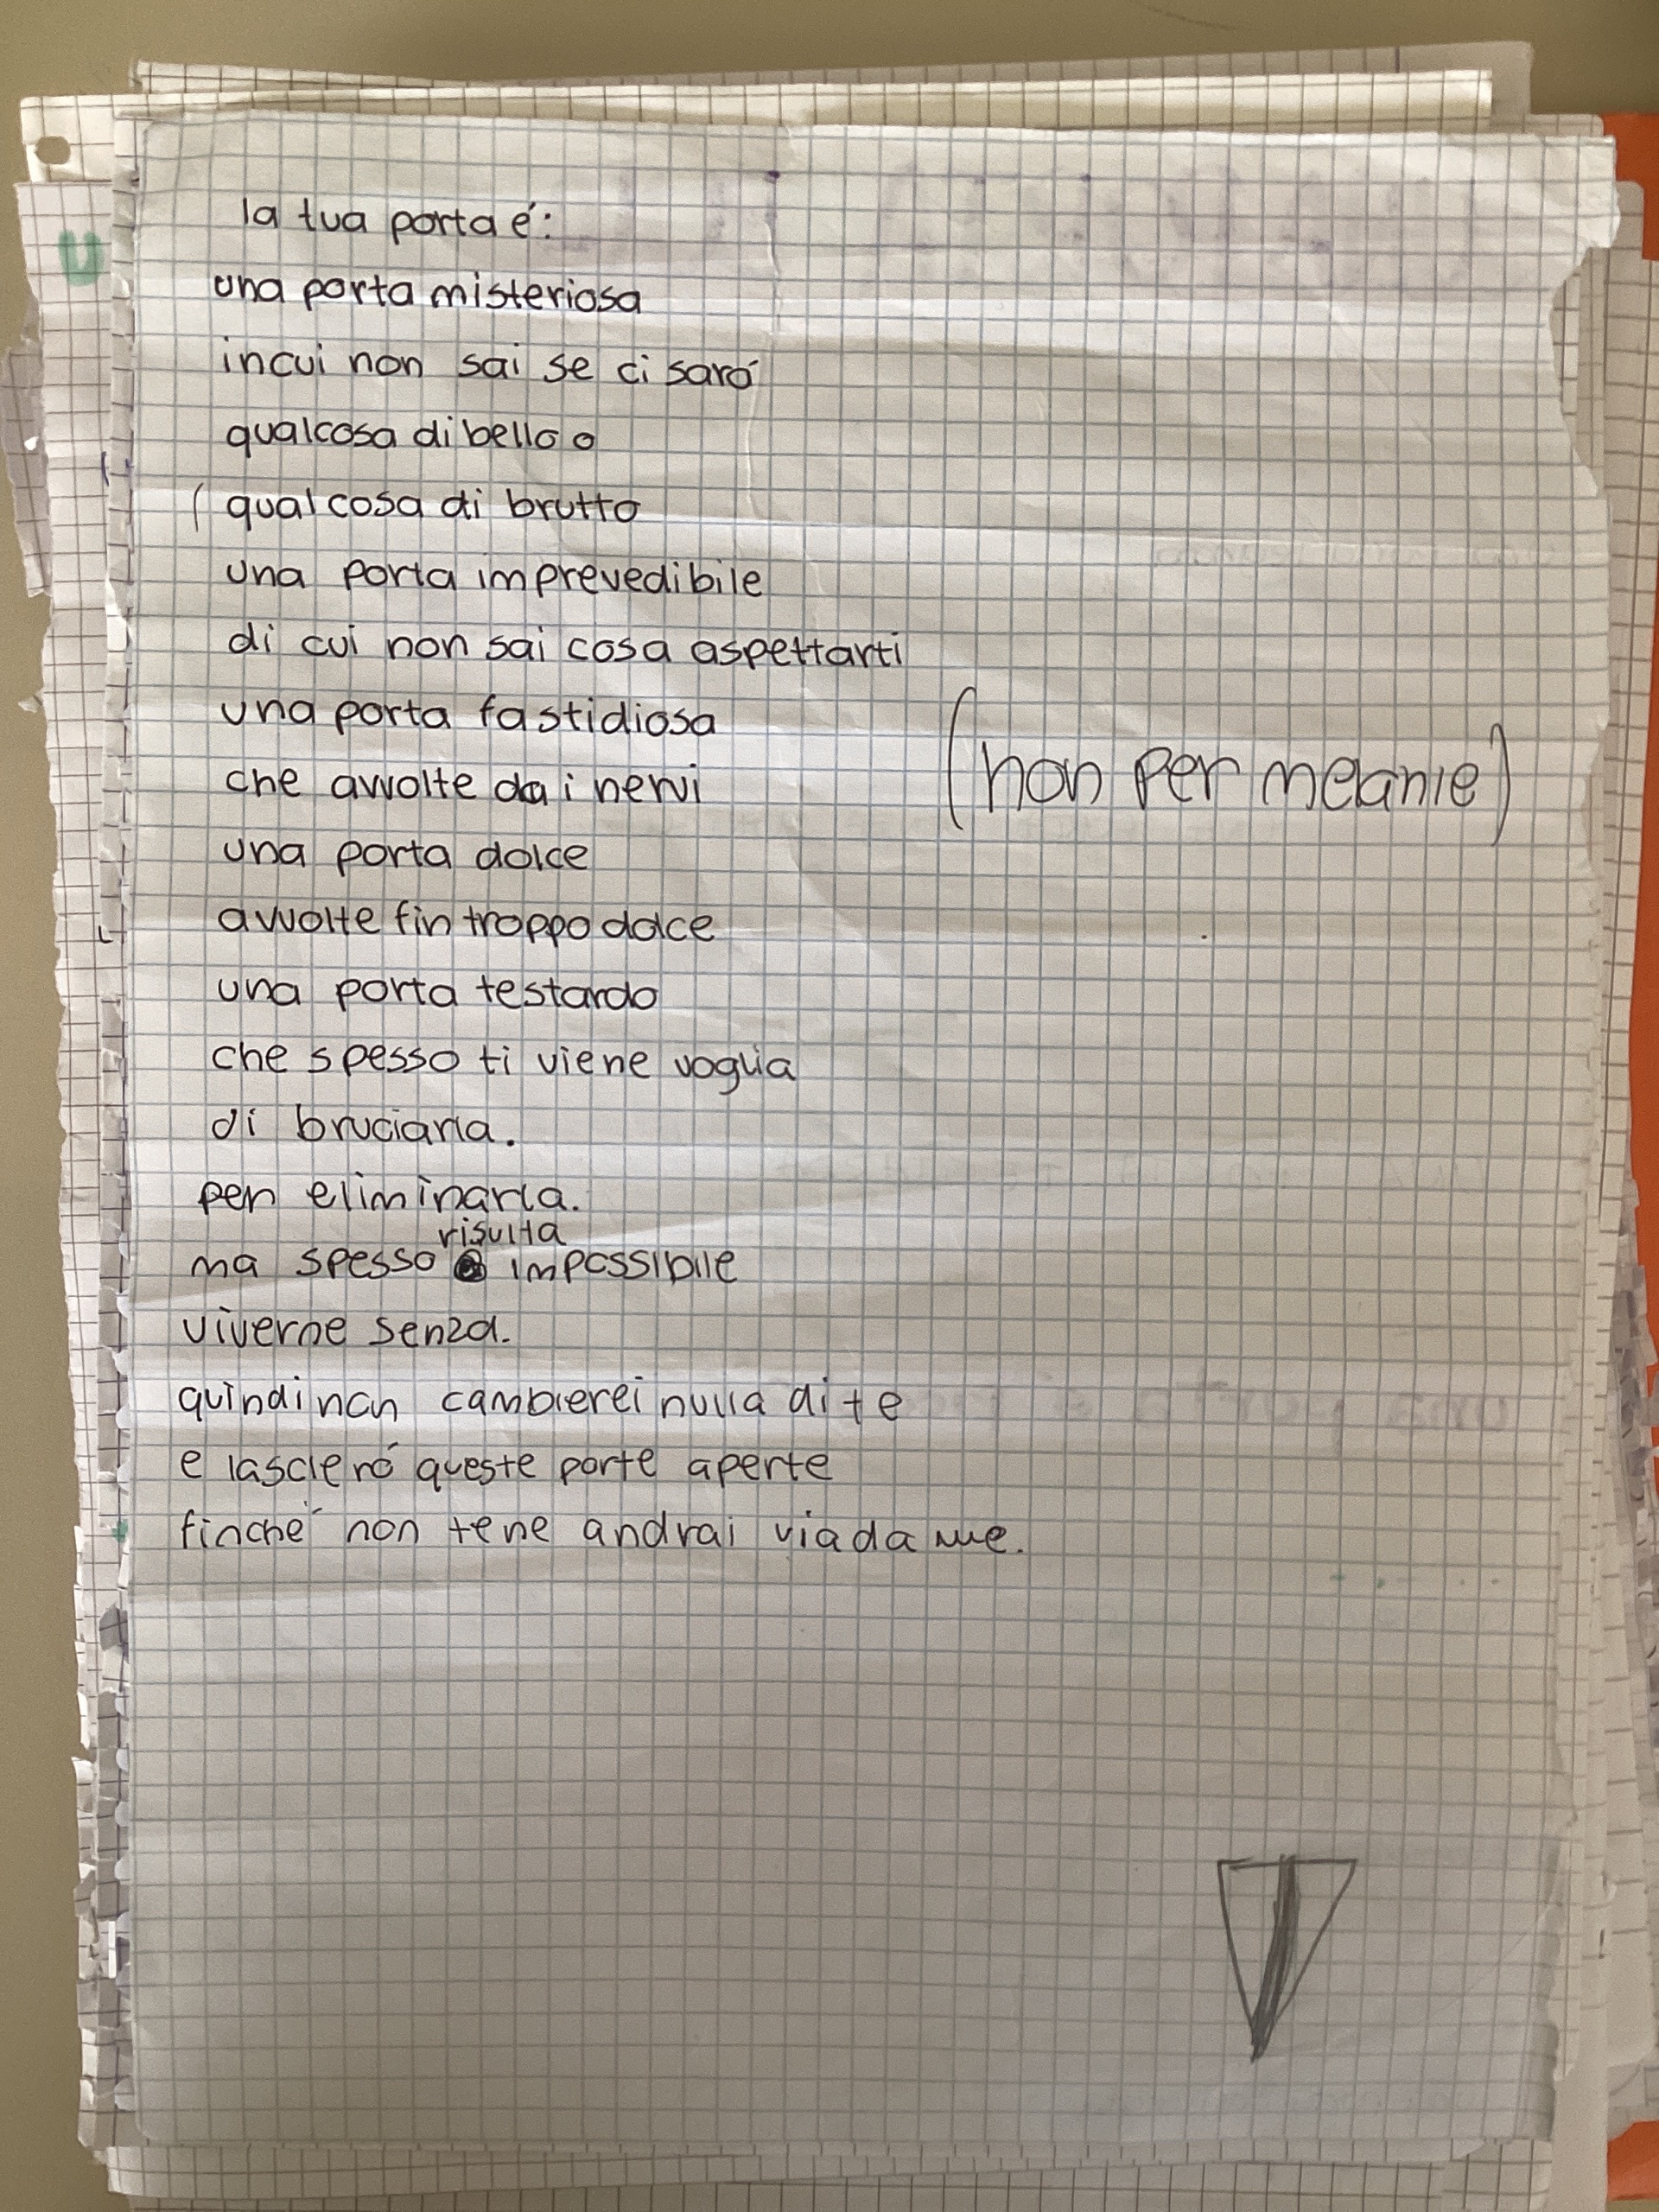 la tua porta é:
una porta misteriosa
incui non sai se ci sará
qualcosa di bello o
( qualcosa di brutto
una porta imprevedibile
di cui non sai cosa aspettarti
una porta fastidiosa
che avvolte da i nervi
(non per melanie)
una porta dolce
avvolte fin troppo dolce
una porta testardo
che spesso ti viene voglia
di bruciarla.
per eliminarla.
ma spesso risulta impossibile
viverne senza.
quindi non cambierei nulla di te
e lascieró queste porte aperte
finché non tene andrai via da me.
U